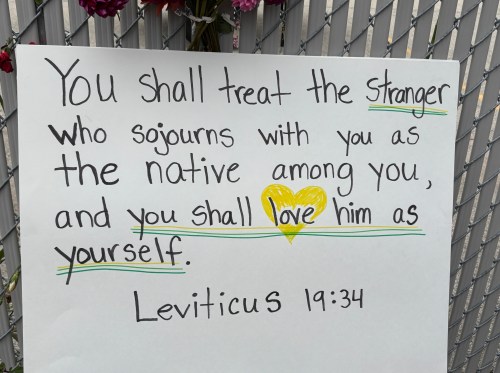 You shall treat the stranger
who sojourns with you as
the native among you,
and you shall love him as
yourself.
Leviticus 19:34